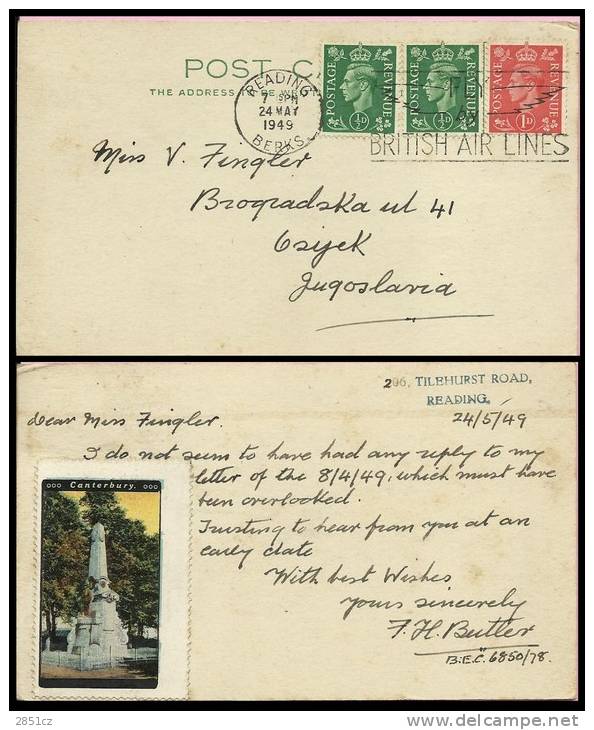 POST C
THE ADDRESS
READING
7 PM
24 MAY
1949
BERKS
POSTAGE REVENUE
½D
POSTAGE REVENUE
½D
POSTAGE REVENUE
1D
FLY
BRITISH AIR LINES
Miss V. Fingler
Brogradska ul 41
Osijek
Jugoslavia
206, TILEHURST ROAD,
READING.
24/5/49
Dear Miss Fingler.
I do not seem to have had any reply to my
letter of the 8/4/49, which must have
been overlooked.
Trusting to hear from you at an
early date
With best Wishes
yours sincerely
F. H. Butler
B.E.C. 6850/78.
Canterbury.
2851cz
www.delcampe.net